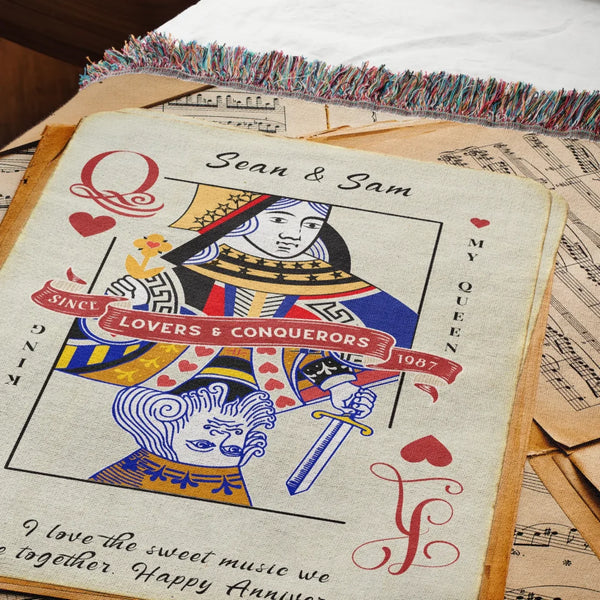 Sean & Sam
Q
MY QUEEN
SINCE LOVERS & CONQUERORS 1987
KING
I love the sweet music we
together. Happy